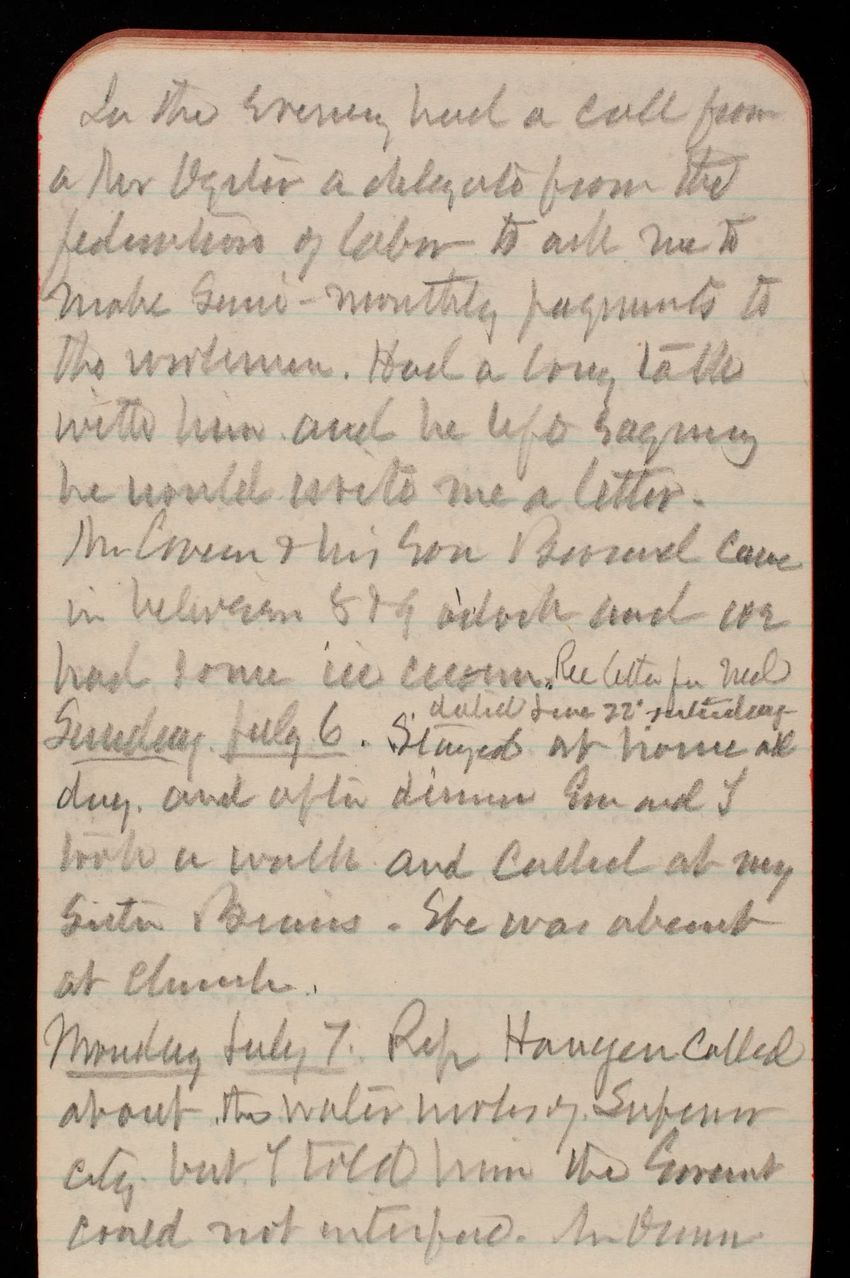 In the evening had a call from
a Mr Ogster a delegate from the
federation of labor to ask me to
make Semi-monthly payments to
the workmen. Had a long talk
with him and he left saying
he would write me a letter.
Mr Cowen & his Son Barnard came
in between 8 & 9 o'clock and we
had some ice cream. Rec letter fr Neal
dated June 22d yesterday
Sunday July 6. Stayed at home all
day. and after dinner Em and I
took a walk and called at my
Sister Bruins. She was absent
at Church.
Monday July 7. Rep Haugen called
about the water works of Superior
city but I told him the Governt
could not interfere. Mr